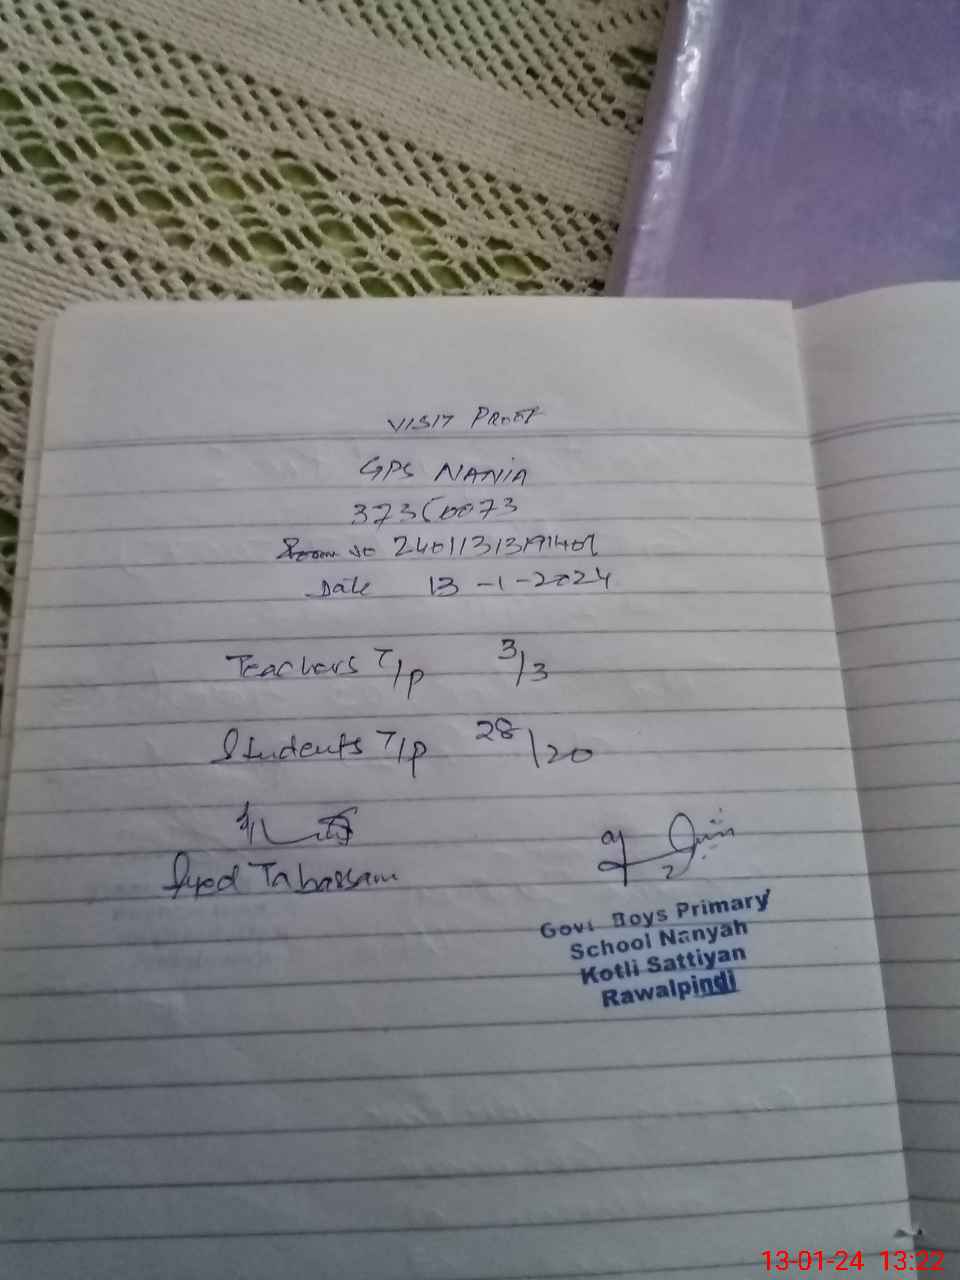 VISIT PROOF
GPS NANIA
37360073
No
Date 13-1-2024
Teachers T/P 3/3
Students T/P 28/20
Syed Tabassam
Govt Boys Primary
School Nanyah
Kotli Sattiyan
Rawalpindi
13-01-24 13:22